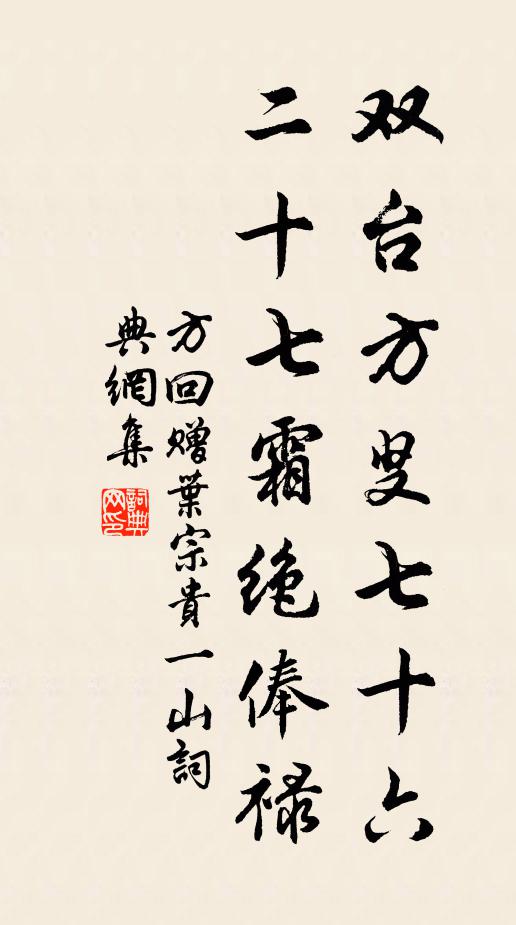 双台方叟七十六
二十七霜绝俸禄
方回赠葉宗貴一山詞
典網集
詞典网印